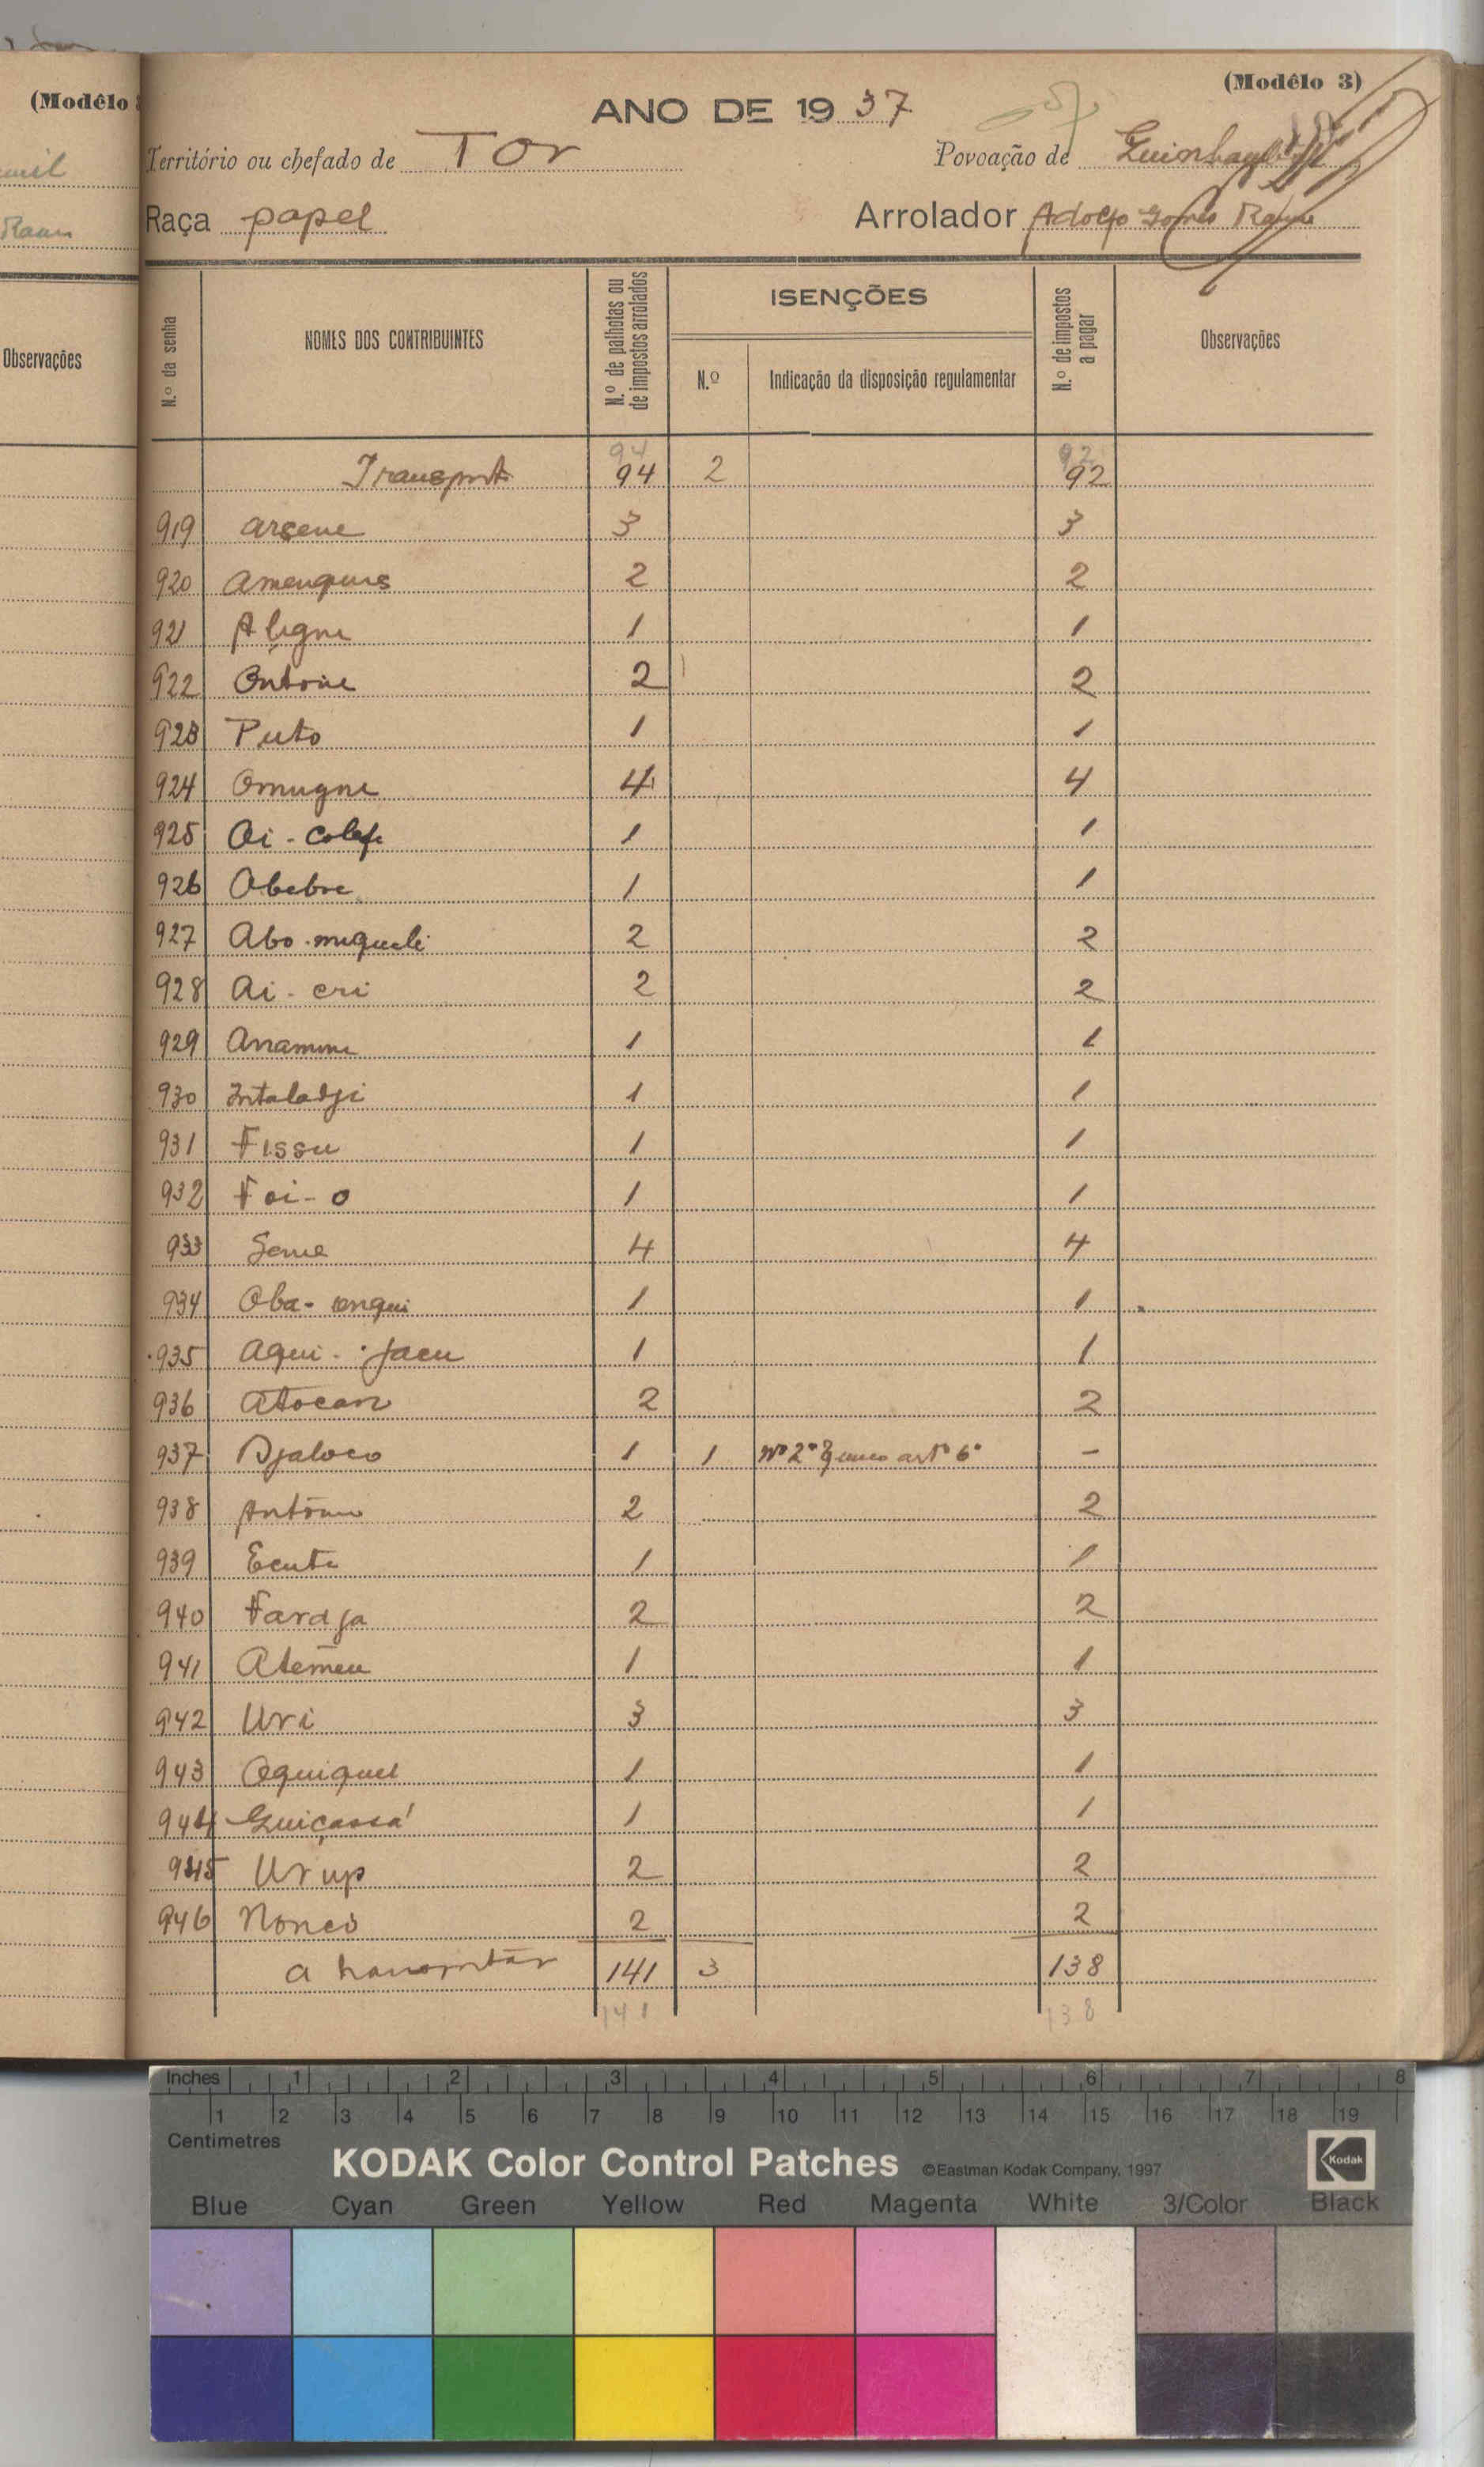 (Modêlo
Observações
(Modêlo 3)
ANO DE 19 37
Território ou chefado de Tor Povoação de
Raça papel Arrolador Adolfo Gomes
N.º da senha
NOMES DOS CONTRIBUINTES
N.º de palhotas ou de impostos arrolados
ISENÇÕES
N.º
Indicação da disposição regulamentar
N.º de impostos a pagar
Observações
94 92
Transporte 94 2 92
919 Arsene 3 3
920 2 2
921 Aligne 1 1
922 Ontoine 2 2
923 Puto 1 1
924 Omugne 4 4
925 Oi - Colefe 1 1
926 Obebre 1 1
927 Abo-miqueli 2 2
928 Ai - cri 2 2
929 Anamine 1 1
930 Intaladji 1 1
931 Fissu 1 1
932 Foi - o 1 1
933 Seme 4 4
934 Oba - 1 1
935 Aqui - Jacu 1 1
936 Atocan 2 2
937 Djaloco 1 1 Nº 2º § unico artº 6º -
938 António 2 2
939 Ecute 1 1
940 Fardja 2 2
941 Atemeu 1 1
942 Uri 3 3
943 Oquiquel 1 1
944 Guiçassá 1 1
945 Urup 2 2
946 Nonco 2 2
a transportar 141 3 138
141 138
Inches 1 2 3 4 5 6 7 8
1 2 3 4 5 6 7 8 9 10 11 12 13 14 15 16 17 18 19
Centimetres
KODAK Color Control Patches ©Eastman Kodak Company, 1997 Kodak
Blue Cyan Green Yellow Red Magenta White 3/Color Black